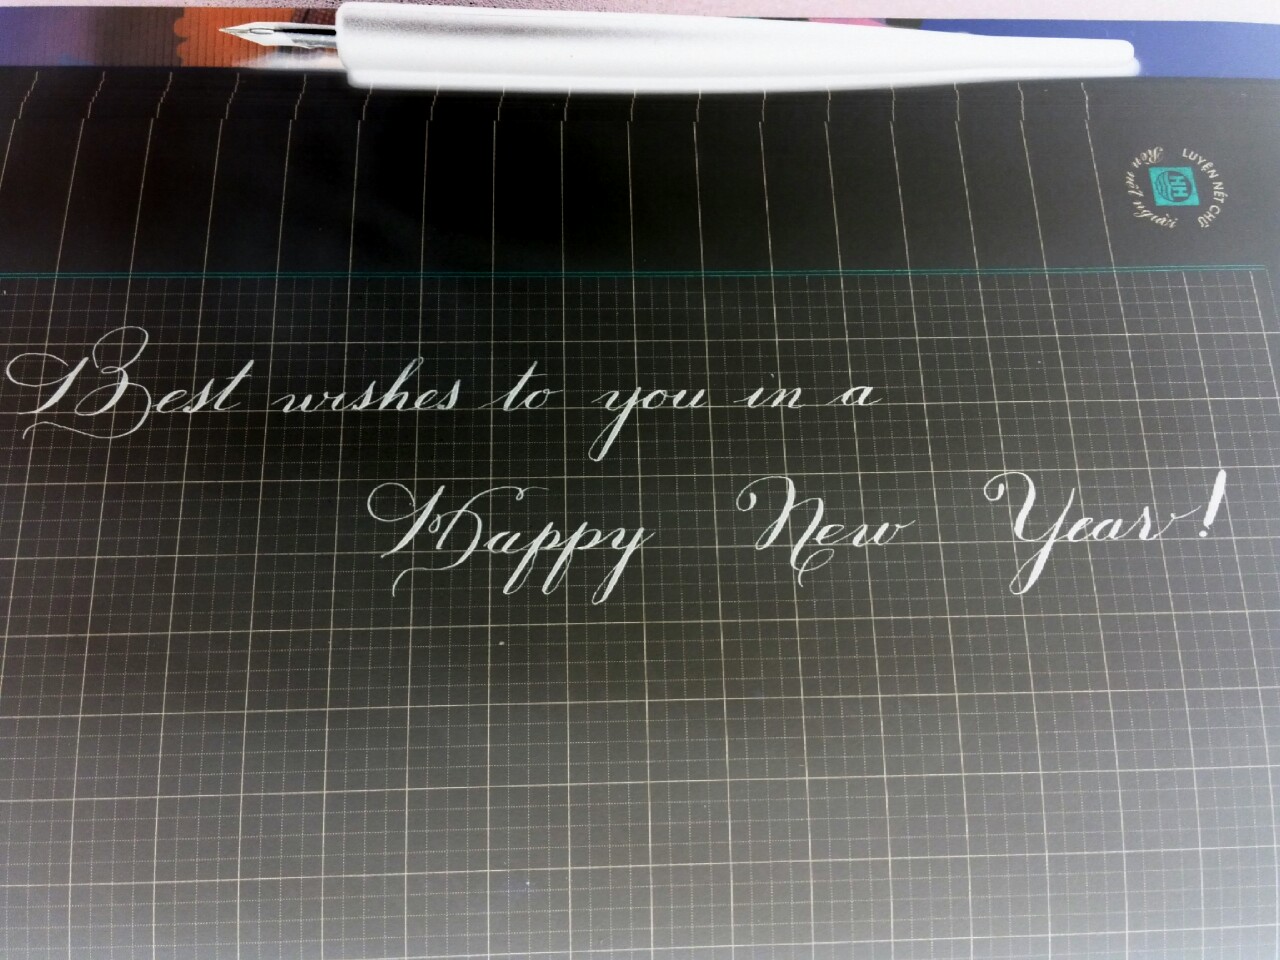 LUYỆN NÉT CHỮ
Rèn nết người
HH
Best wishes to you in a
Happy New Year!